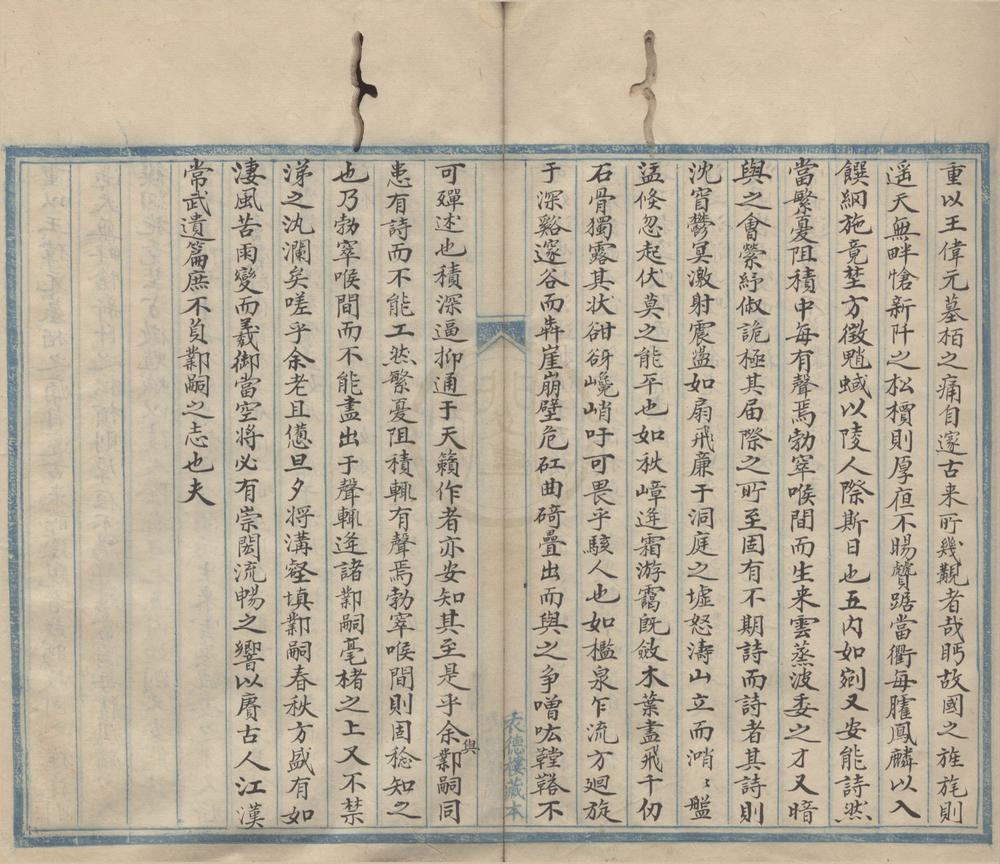 重以王偉元墓栢之痛自邃古来所幾覯者哉眄故國之旌旄則
遥天無畔愴新阡之松檟則厚夜不暘贙踞當衢每臛鳳麟以入
饌網施竟埜方徵魈蜮以陵人際斯日也五内如剜又安能詩然
當繁憂阻積中每有聲焉勃窣喉間而生来雲蒸波委之才又暗
與之會縈紆俶詭極其届際之所至固有不期詩而詩者其詩則
沈窅鬱冥激射震盪如扇飛廉于洞庭之墟怒濤山立而㴋㴋盤
猛倏忽起伏莫之能平也如秋嶂逢霜游靄旣斂木葉盡飛千仞
石骨獨露其状㟏谺巉峭吁可畏乎駭人也如檻泉乍流方廻旋
于深谿邃谷而犇崖崩壁危矼曲碕疊出而與之争噌吰鞺鞳不
可殫述也積深逼抑通于天籟作者亦安知其至是乎余與鄴嗣同
患有詩而不能工然繁憂阻積輒有聲焉勃窣喉間則固稔知之
也乃勃窣喉間而不能盡出于聲輒逢諸鄴嗣毫楮之上又不禁
涕之汍瀾矣嗟乎余老且憊旦夕將溝壑填鄴嗣春秋方盛有如
淒風苦雨變而羲御當空将必有崇閎流暢之響以賡古人江漢
常武遺篇庶不負鄴嗣之志也夫
表德樓藏本